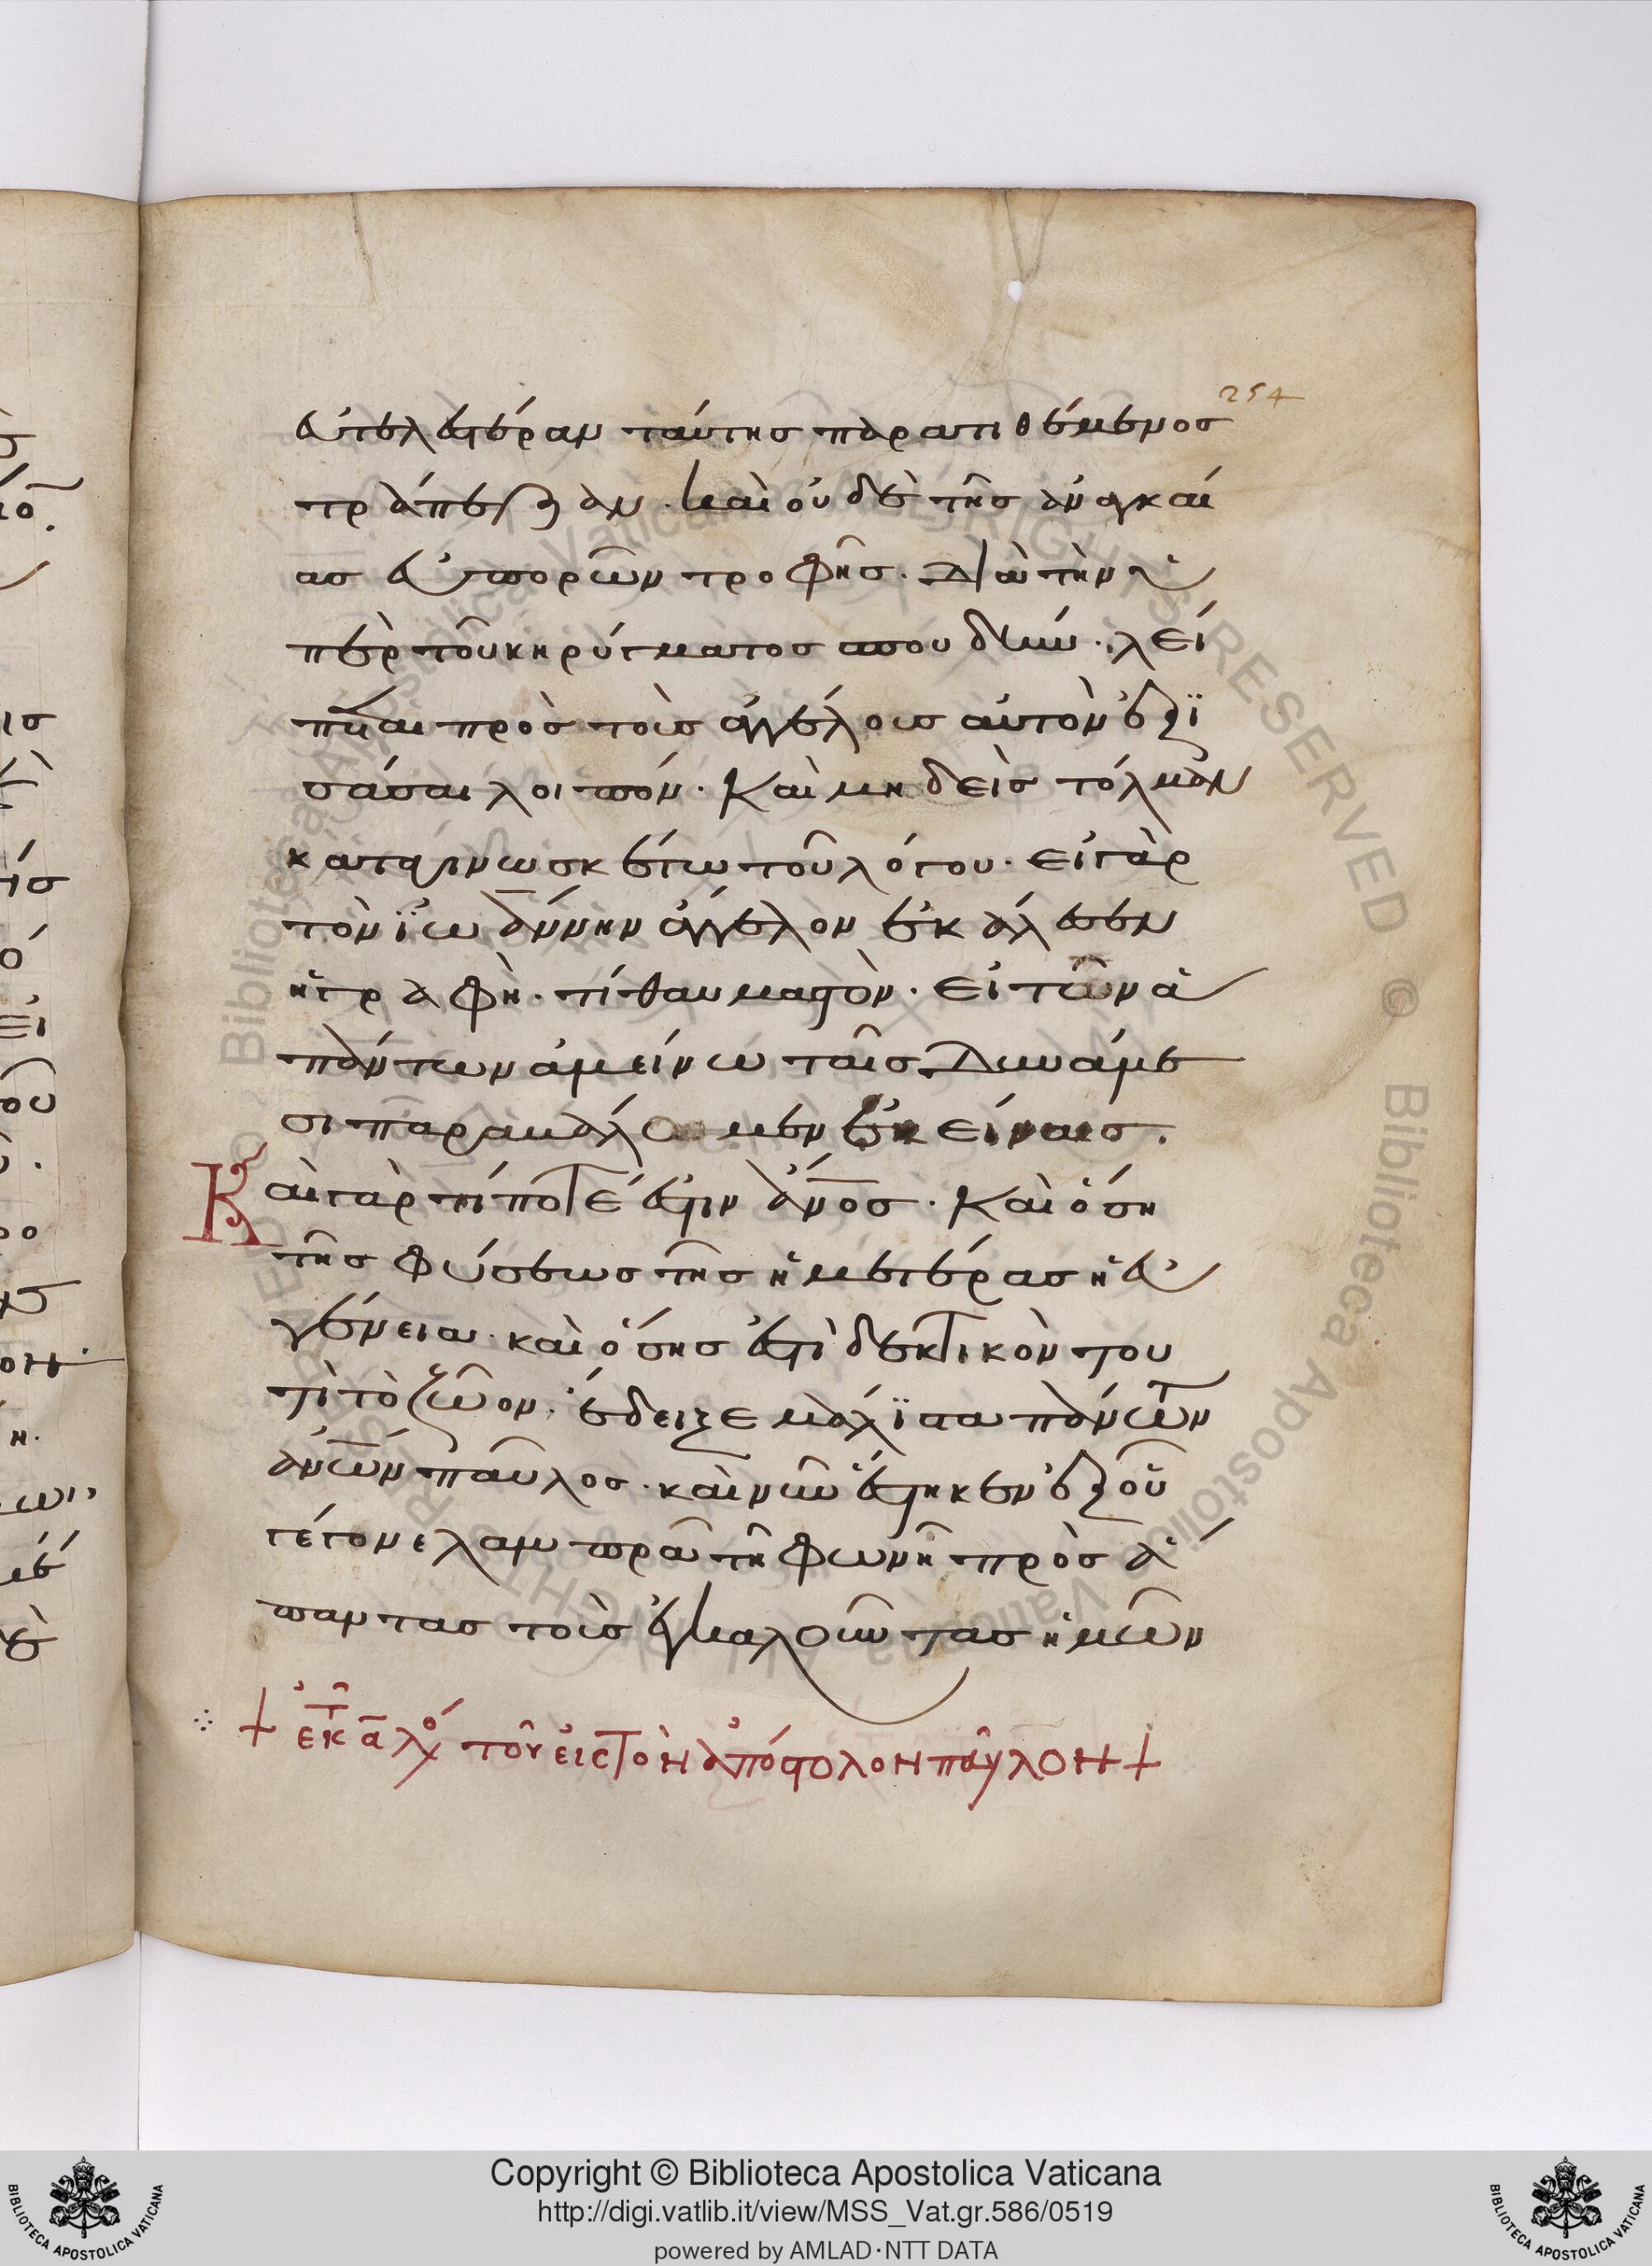 254
εὐτελεστέραν ταύτης παρατιθέμενος
τράπεζαν. καὶ οὐδὲ τῆς ἀναγκαί
ας εὐπορῶν τροφῆς. Διὰ τὴν ὑ
πὲρ τοῦ κηρύγματος σπουδήν. λεί
πεται πρὸς τοὺς ἀγγέλους αὐτὸν ἐξι
σάσαι λοιπόν. Καὶ μηδεὶς τόλμαν
καταγινωσκέτω τοῦ λόγου. εἰ γὰρ
τὸν ϊωάννην ἄγγελον ἐκάλεσεν
ἡ γραφὴ. τί θαυμαστὸν. εἰ τῶν ἁ
πάντων ἀμείνω ταῖς Δυνάμε
σι παραβάλωμεν ἐκείναις.
Καὶ γὰρ τί ποτέ ἐστιν ἄνος. Καὶ ὅση
τῆς φύσεως τῆς ἡμετέρας ἡ εὐ
γένεια. καὶ ὅσης ἐστὶ δεκτικὸν του
τὶ τὸ ζῶον. ἔδειξε μάλϊστα πάντων
ἀνων παῦλος. καὶ νῦν ἕστηκεν ἐξ οὗ
γέγονε λαμπρᾶ τῆ φωνῆ πρὸς ἅ
παντας τοὺς ἐγκαλοῦντας ἡμῶν
ἐκ τ α λόγ τοῦ εἰς τὸν ἀπόστολον παῦλον
Copyright © Biblioteca Apostolica Vaticana
http://digi.vatlib.it/view/MSS_Vat.gr.586/0519
powered by AMLAD·NTT DATA
BIBLIOTECA APOSTOLICA VATICANA
BIBLIOTECA APOSTOLICA VATICANA